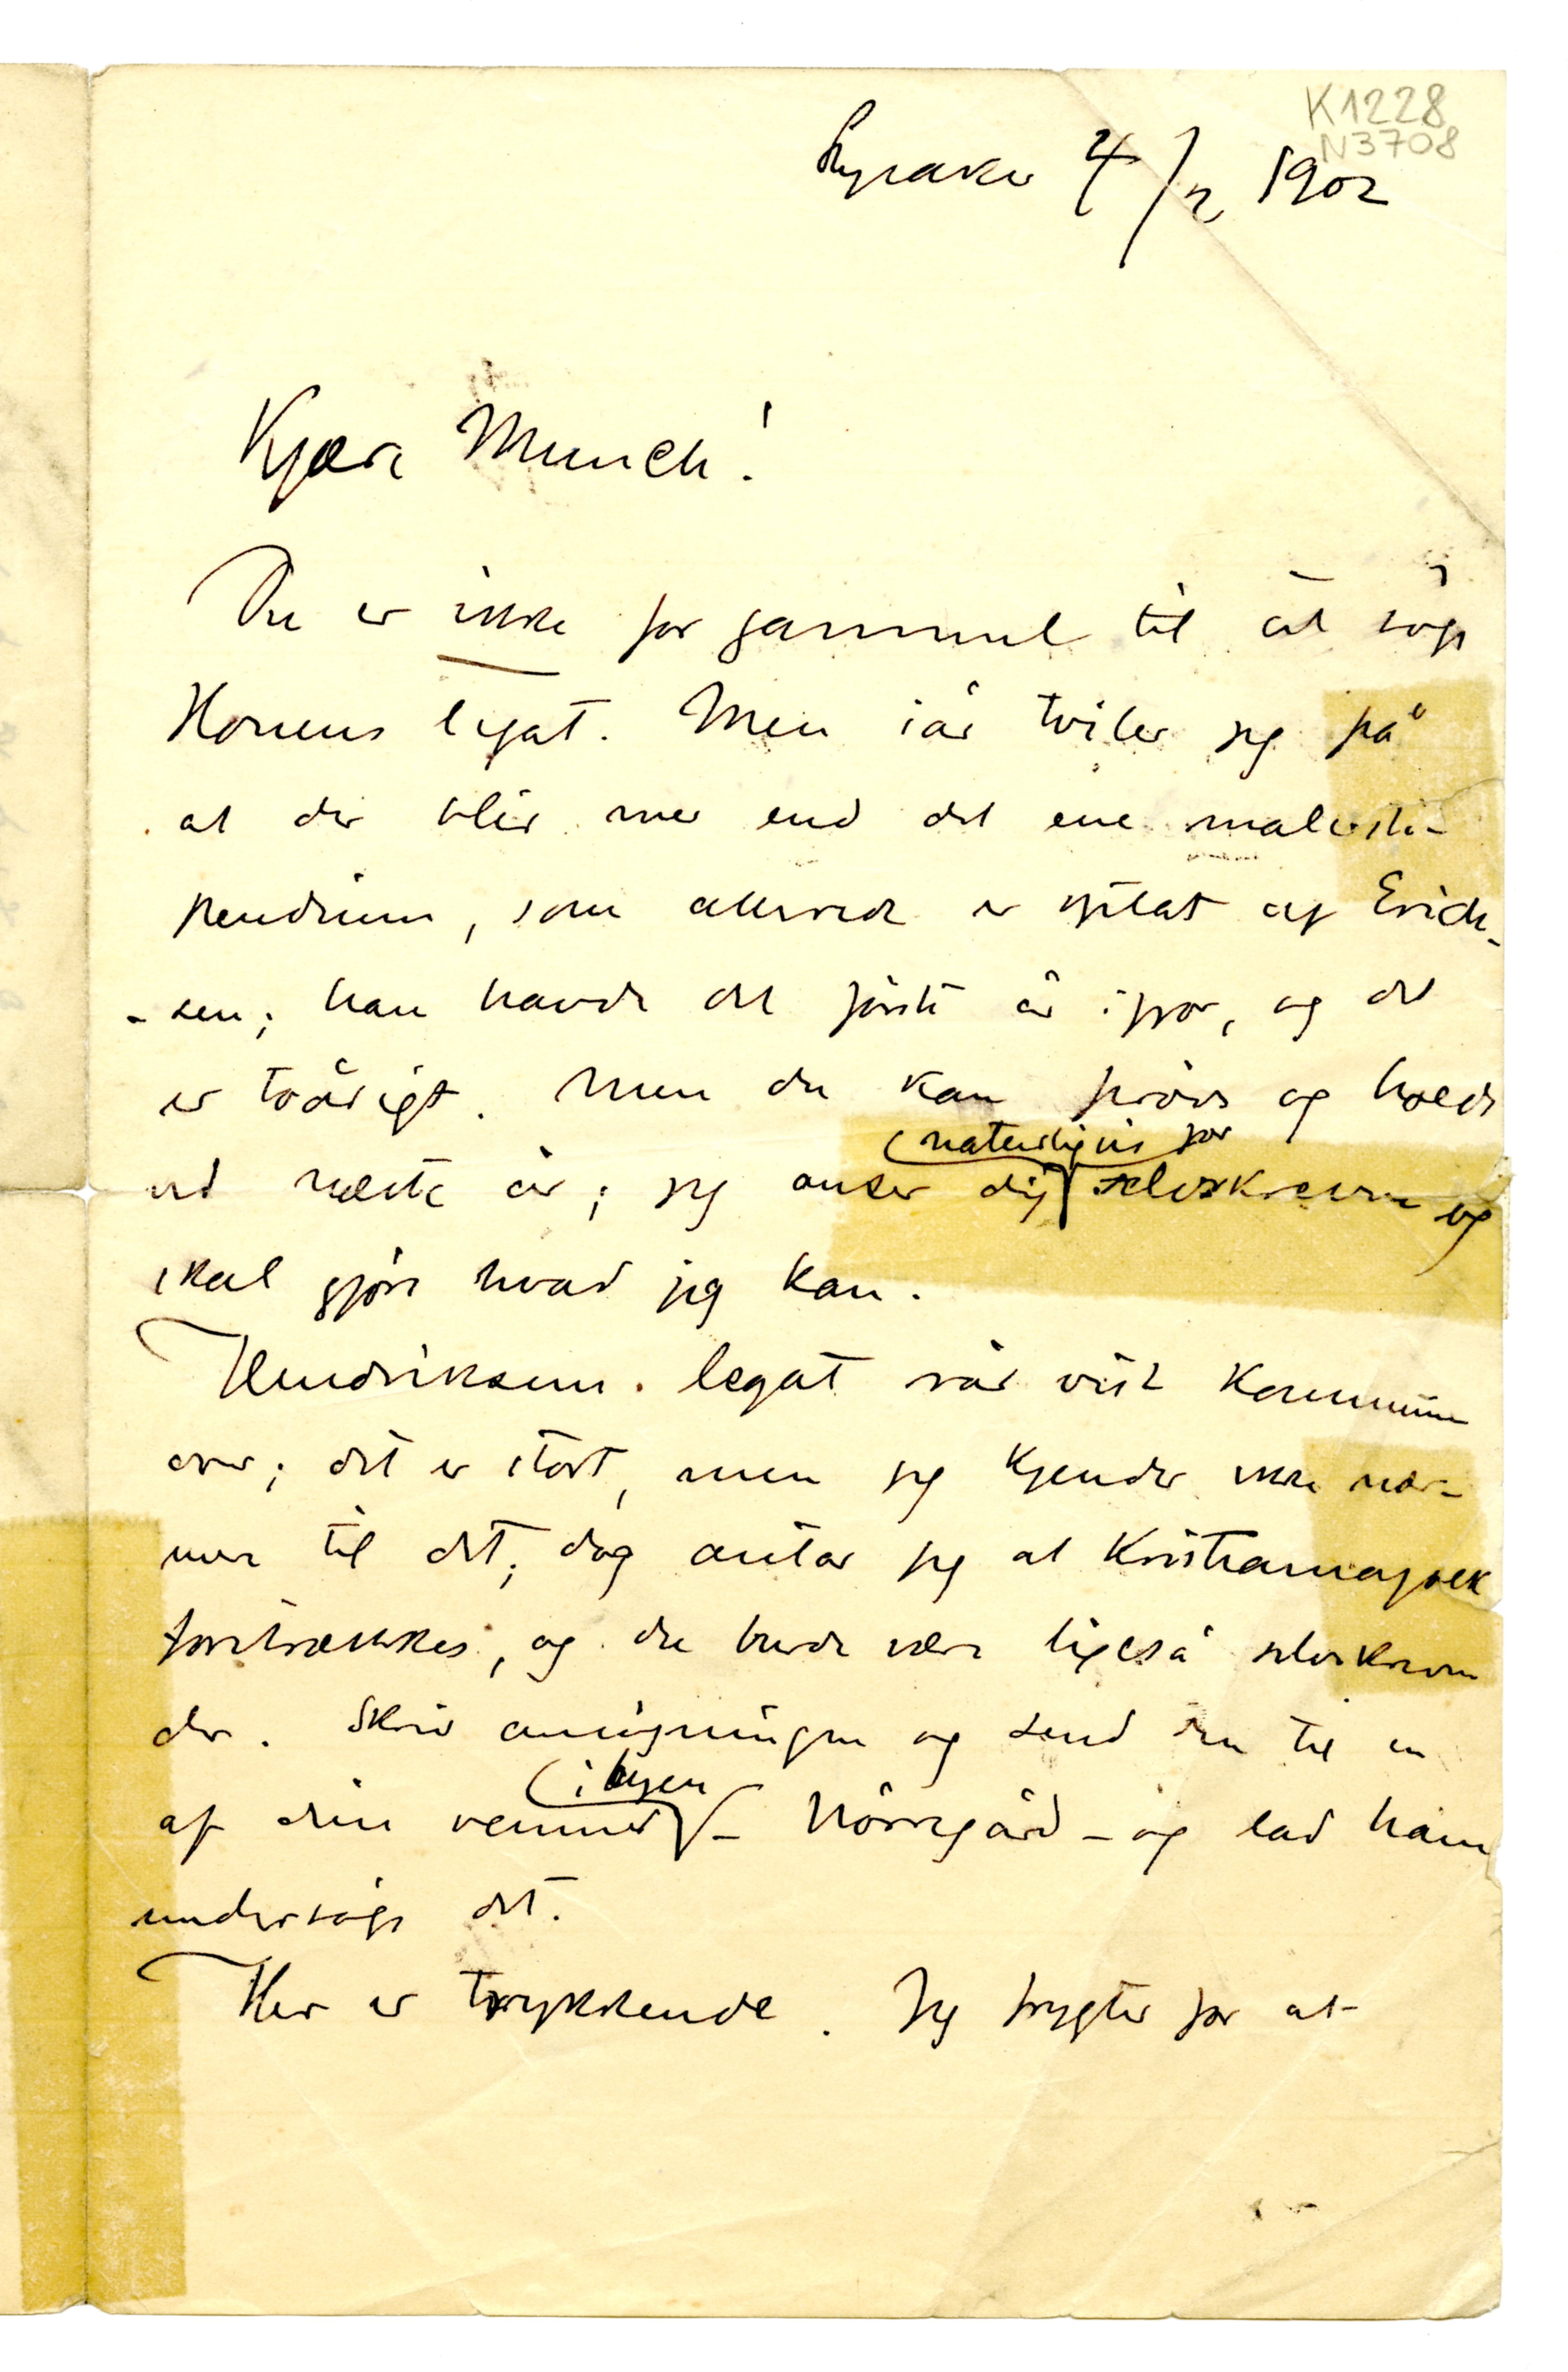 K1228
N3708
Lysaker 4/2 1902
Kjære Munch!
Du er ikke for gammel til at søge
Houens legat. Men iår tviler jeg på
at der blir mer end det ene malersti-
pendium, som allerede er optat af Erich-
-sen; han havde det første år ifjor, og det
er toårigt. Men du kan prøve og holde
ud næste år; jeg anser dig naturligvis for selvskreven og
skal gjøre hvad jeg kan.
Hendriksens legat rår vist Kommunen
over; det er stort, men jeg kjender ikke nær-
mere til det; dog antar jeg at Kristianiafolk
foretrækkes, og du burde være ligeså selvskreven
der. Skriv ansøgningen og send den til en
af dine venner i byen – Nørregård – og lad ham
undersøge det.
Her er trykkende. Jeg frygter for at